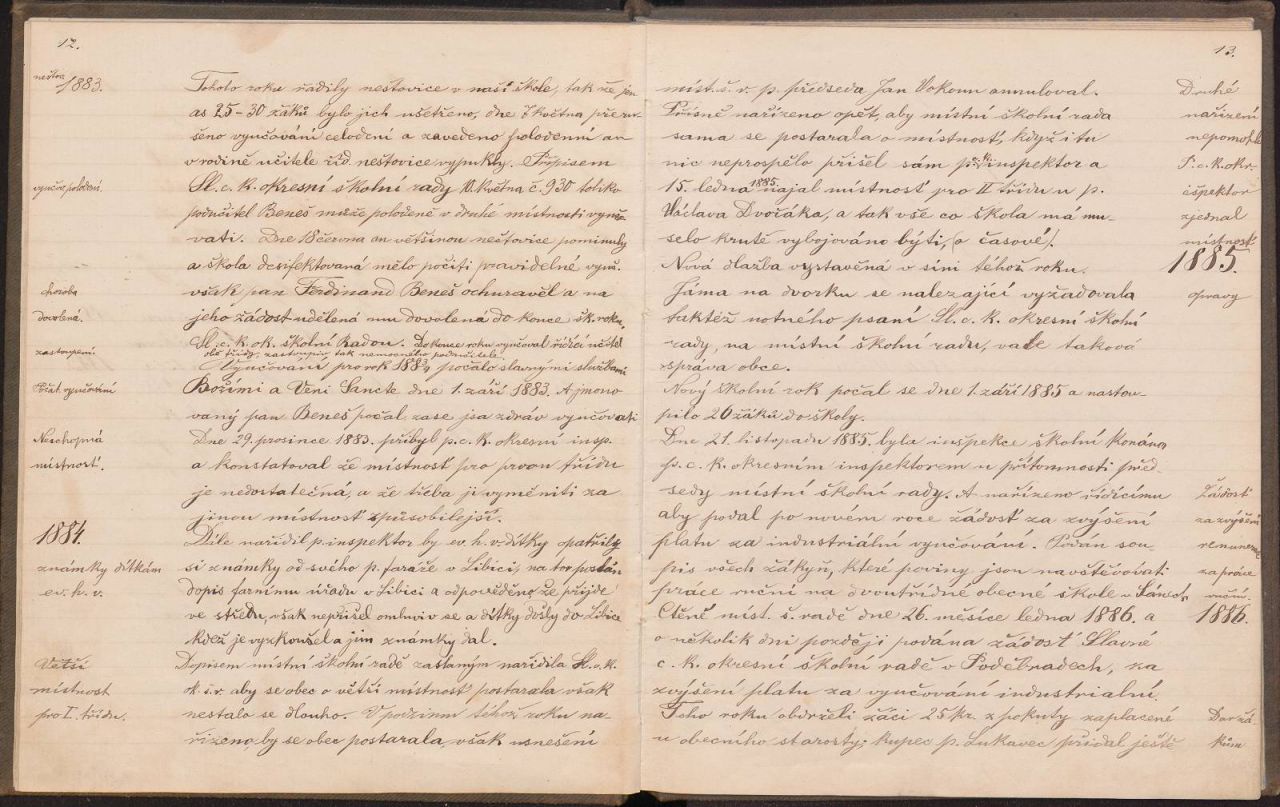 12.
1883.
Tohoto roku řádily neštovice v naší škole, tak že jen
as 25-30 žáků bylo jich ušetřeno, dne 7 května přeru-
šeno vyučování celodení a zavedeno polodenní an
v rodině učitele říd. neštovice vypukly. Přípisem
vyučov. polodení.
Sl. c. k. okresní školní rady 10. května č. 930 toliko
podučitel Beneš může polodeně v druhé místnosti vyučo-
vati. Dne 18 června an většinou neštovice pominuly
a škola desifektovaná mělo počíti pravidelné vyuč.
choroba
však pan Ferdinand Beneš ochuravěl a na
dovolená.
jeho žádost udělená mu dovolená do konce šk. roku,
Sl. c. k. ok. školní Radou. Do konce roku vyučoval řídící učitel
zastoupení.
obě třídy, zastoupiv tak nemocného podučitele.
Vyučování pro rok 1883/4 počalo slavnými službami
Božími a Veni Sancte dne 1. září 1883. A jmeno
vaný pan Beneš počal zase jsa zdráv vyučovati
Neschopná
Dne 29. prosince 1883. přibyl p. c. k. okresní insp.
místnost.
a konstatoval že místnost pro prvou třídu
je nedostatečná, a že třeba ji vyměniti za
jinou místnost způsobilejší.
1884.
Dále nařídil p. inspektor by ev. h. v. dítky opatřily
známky dítkám
si známky od svého p. faráře v Libici, na to poslán
ev. h. v.
dopis farnímu úřadu v Libici a odpověděno, že přijde
ve středu, však nepřišel omluviv se a dítky došly do Libice
kdež je vyzkoušel a jim známky dal.
Větší
Dopisem místní školní radě zaslaným nařídila Sl. c. k.
místnost
ok. š. r. aby se obec o větší místnost postarala však
pro I. třídu.
nestalo se dlouho. V podzimu téhož roku na-
řízeno, by se obec postarala, však usnešení
13.
míst. š. r. p. předseda Jan Vokoun annuloval.
Druhé
Přísně nařízeno opět, aby místní školní rada
nařízení
sama se postarala o místnost, když i tu
nepomohlo
nic neprospělo přišel sám p. inspektor a
P. c. k. okr.
15. ledna 1885. najal místnost pro II třídu u p.
išpektor
Václava Dvořáka, a tak vše co škola má mu-
zjednal
selo krutě vybojováno býti, (o časové).
místnost.
Nová dlažba vystavěná v síni téhož roku.
1885.
Jáma na dvorku se nalezající vyžadovala
opravy
taktéž notného psaní Sl. c. k. okresní školní
rady, na místní školní radu, vašle taková
správa obce.
Nový školní rok počal se dne 1. září 1885 a nastou-
pilo 26 žáků do školy.
Dne 21. listopadu 1885. byla inspekce školní konána
p. c. k. okresním inspektorem u přítomnosti před-
sedy místní školní rady. A nařízeno řídícímu
Žádost
aby podal po novém roce žádost za zvýšení
za zvýšení
platu za industriální vyučování. Podán sou-
remunerac
pis všech žákyň, které poviny jsou navštěvovati
za práce
práce ruční na dvoutřídné obecné škole v Sánech
ruční.
Ctěné míst. š. radě dne 26. měsíce ledna 1886. a
1886.
o několik dní později podána žádost Slavné
c. k. okresní školní radě v Poděbradech, za
zvýšení platu za vyučování industrialní.
Toho roku obdrželi žáci 25 kr. z pokuty zaplacené
Dar žá-
u obecního starosty; kupec p. Lukavec přidal ještě
kům